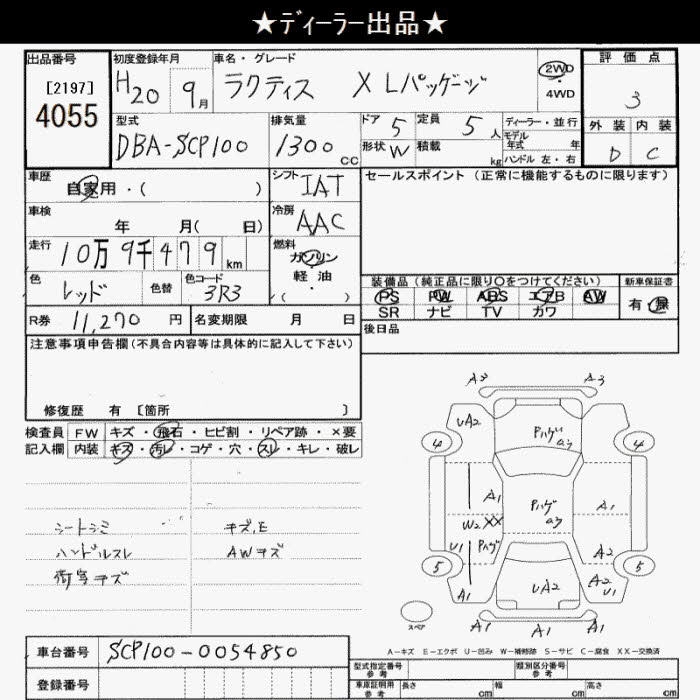 ★ディーラー出品★
出品番号
[2197]
4055
初度登録年月
H20 9月
車名・グレード
ラクティス X Lパッケージ
2WD
・
4WD
評価点
3
型式
DBA-SCP100
排気量
1300 CC
ドア 5
定員 5 人
形状 W
積載 kg
ディーラー・並行
モデル年式 年
ハンドル 左・右
外装 内装
D C
車歴
自家用・( )
シフト
IAT
セールスポイント (正常に機能するものに限ります)
車検
年 月( 日)
冷房
AAC
走行
10万 9千 4 7 9 km
燃料
ガソリン
・
軽油
・
( )
色
レッド
色替
色コード
3R3
装備品 (純正品に限り○をつけてください)
新車保証書
PS PW ABS エアB AW
SR ナビ TV カワ
有・無
R券 11,270 円
名変期限 月 日
後日品
注意事項申告欄(不具合内容等は具体的に記入して下さい)
修復歴 有 [箇所 ]
検査員 FW キズ・飛石・ヒビ割・リペア跡・×要
記入欄 内装 キズ・汚レ・コゲ・穴・スレ・キレ・破レ
シートシミ
キズ,E
ハンドルスレ
AWキズ
A3 A3
UA2
Pハゲ
a3
4 4
A1
Pハゲ
a3
A1
W2 XX
U1
Pハゲ
A2
5 5
A1
UA2
A2
U1
A1 A1
スペア
A-キズ E-エクボ U-凹み W-補修跡 S-サビ C-腐食 XX-交換済
車台番号 SCP100-0054850
登録番号
型式指定番号
参考
類別区分番号
参考
車庫証明用
参考
長さ cm
幅 cm
高さ cm